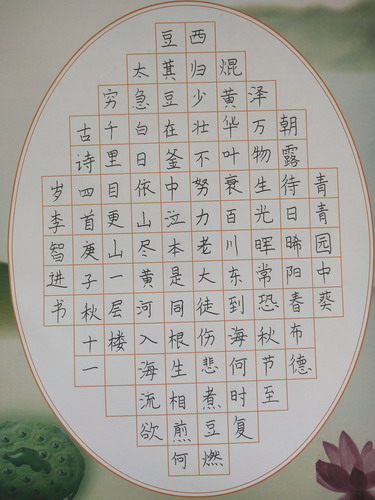 青青园中葵
朝露待日晞阳春布德
泽万物生光晖常恐秋节至
焜黄华叶衰百川东到海何时复
西归少壮不努力老大徒伤悲煮豆燃
豆萁豆在釜中泣本是同根生相煎何
太急白日依山尽黄河入海流欲
穷千里目更山一层楼
古诗四首庚子秋十一
岁李智进书